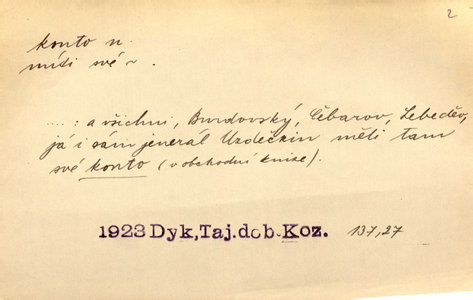 2
konto n.
míti své ~.
....: a všichni, Burdovský, Čebarov, Lebeděv,
já i sám jenerál Uzděčkin měli tam
své konto (v obchodní knize).
1923 Dyk, Taj. dob. Koz. 137,27